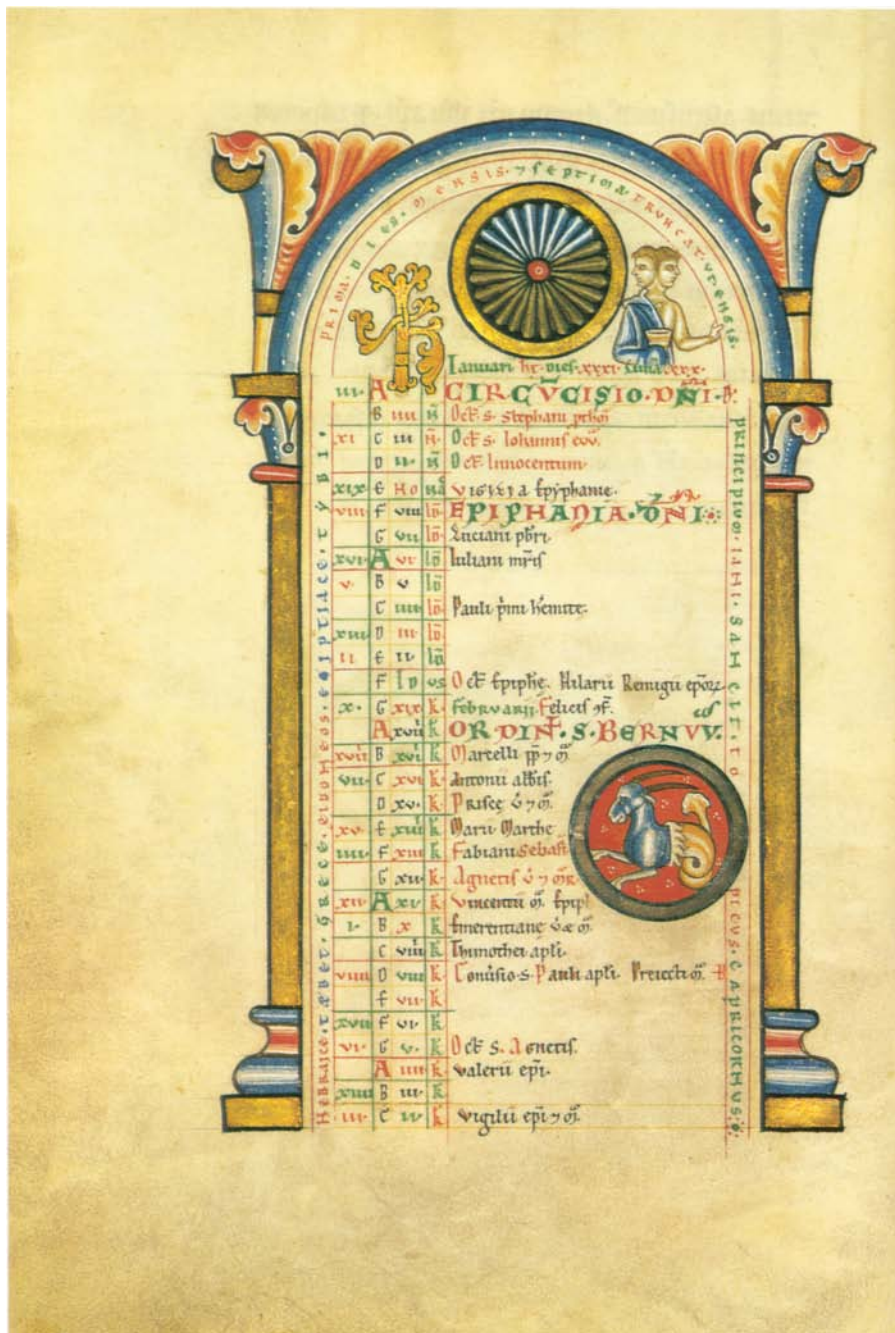 PRIMA · DIES · MENSIS · ⁊ SEPTIMA TRUNCAT UT ENSIS ·
KL
Ianuari hт · dies · xxxi · luna · xxx ·
iii · A CIRCŪCISIO · DN̄I ·
B iiii N̄ Oct̄ · s · Stephani
xi C iii N̄ Oct̄ s · Iohannis
D ii · N̄ Oct̄ Innocentum ·
xix E No nā VIGILIA Epyphanie ·
viii F viii ID̄ EPIPHANIA · DN̄I ·
G vii ID̄ Luciani pb̄ri ·
xvi · A vi ID̄ Iuliani mr̄is
v · B v ID̄
C iiii ID̄ Pauli p̄mi h̄emite ·
xiii D iii ID̄
ii E ii ID̄
F ID us Oct̄ Epiph̄e · Hilarii Remigii
x · G xix K FEBRVARII Felicis
A xviii K ORDIN̄ · S · BERNVV
xviii B xvii K Marcelli pp̄ ⁊ m̄
vii · C xvi K Antonii abb̄is ·
D xv · K Prisce v̄ ⁊ m̄
xv · E xiiii K Marii Marthe
iiii F xiii K Fabiani Sebasti
G xii K Agnetis v̄ ⁊
xii A xi · K Vincentii m̄ ·
i · B x K Emerentiane
C viiii K Thimothei apl̄i ·
viiii D viii K Conv̄sio · s · Pauli apl̄i · Preiecti m̄ ·
E vii · K
xvii F vi · K
vi · G v · K Oct̄ S · Agnetis ·
A iiii K Valerii ep̄i ·
xiiii B iii · K
iii · C ii K Vigilii ep̄i ⁊ m̄
HEBRAICE · TÆBET · GRECE · EIDONEOS · EGIPTIACE · TYBI ·
PRINCIPIVM · IANI · SANCIT
PICVS · CAPRICORNVS ·